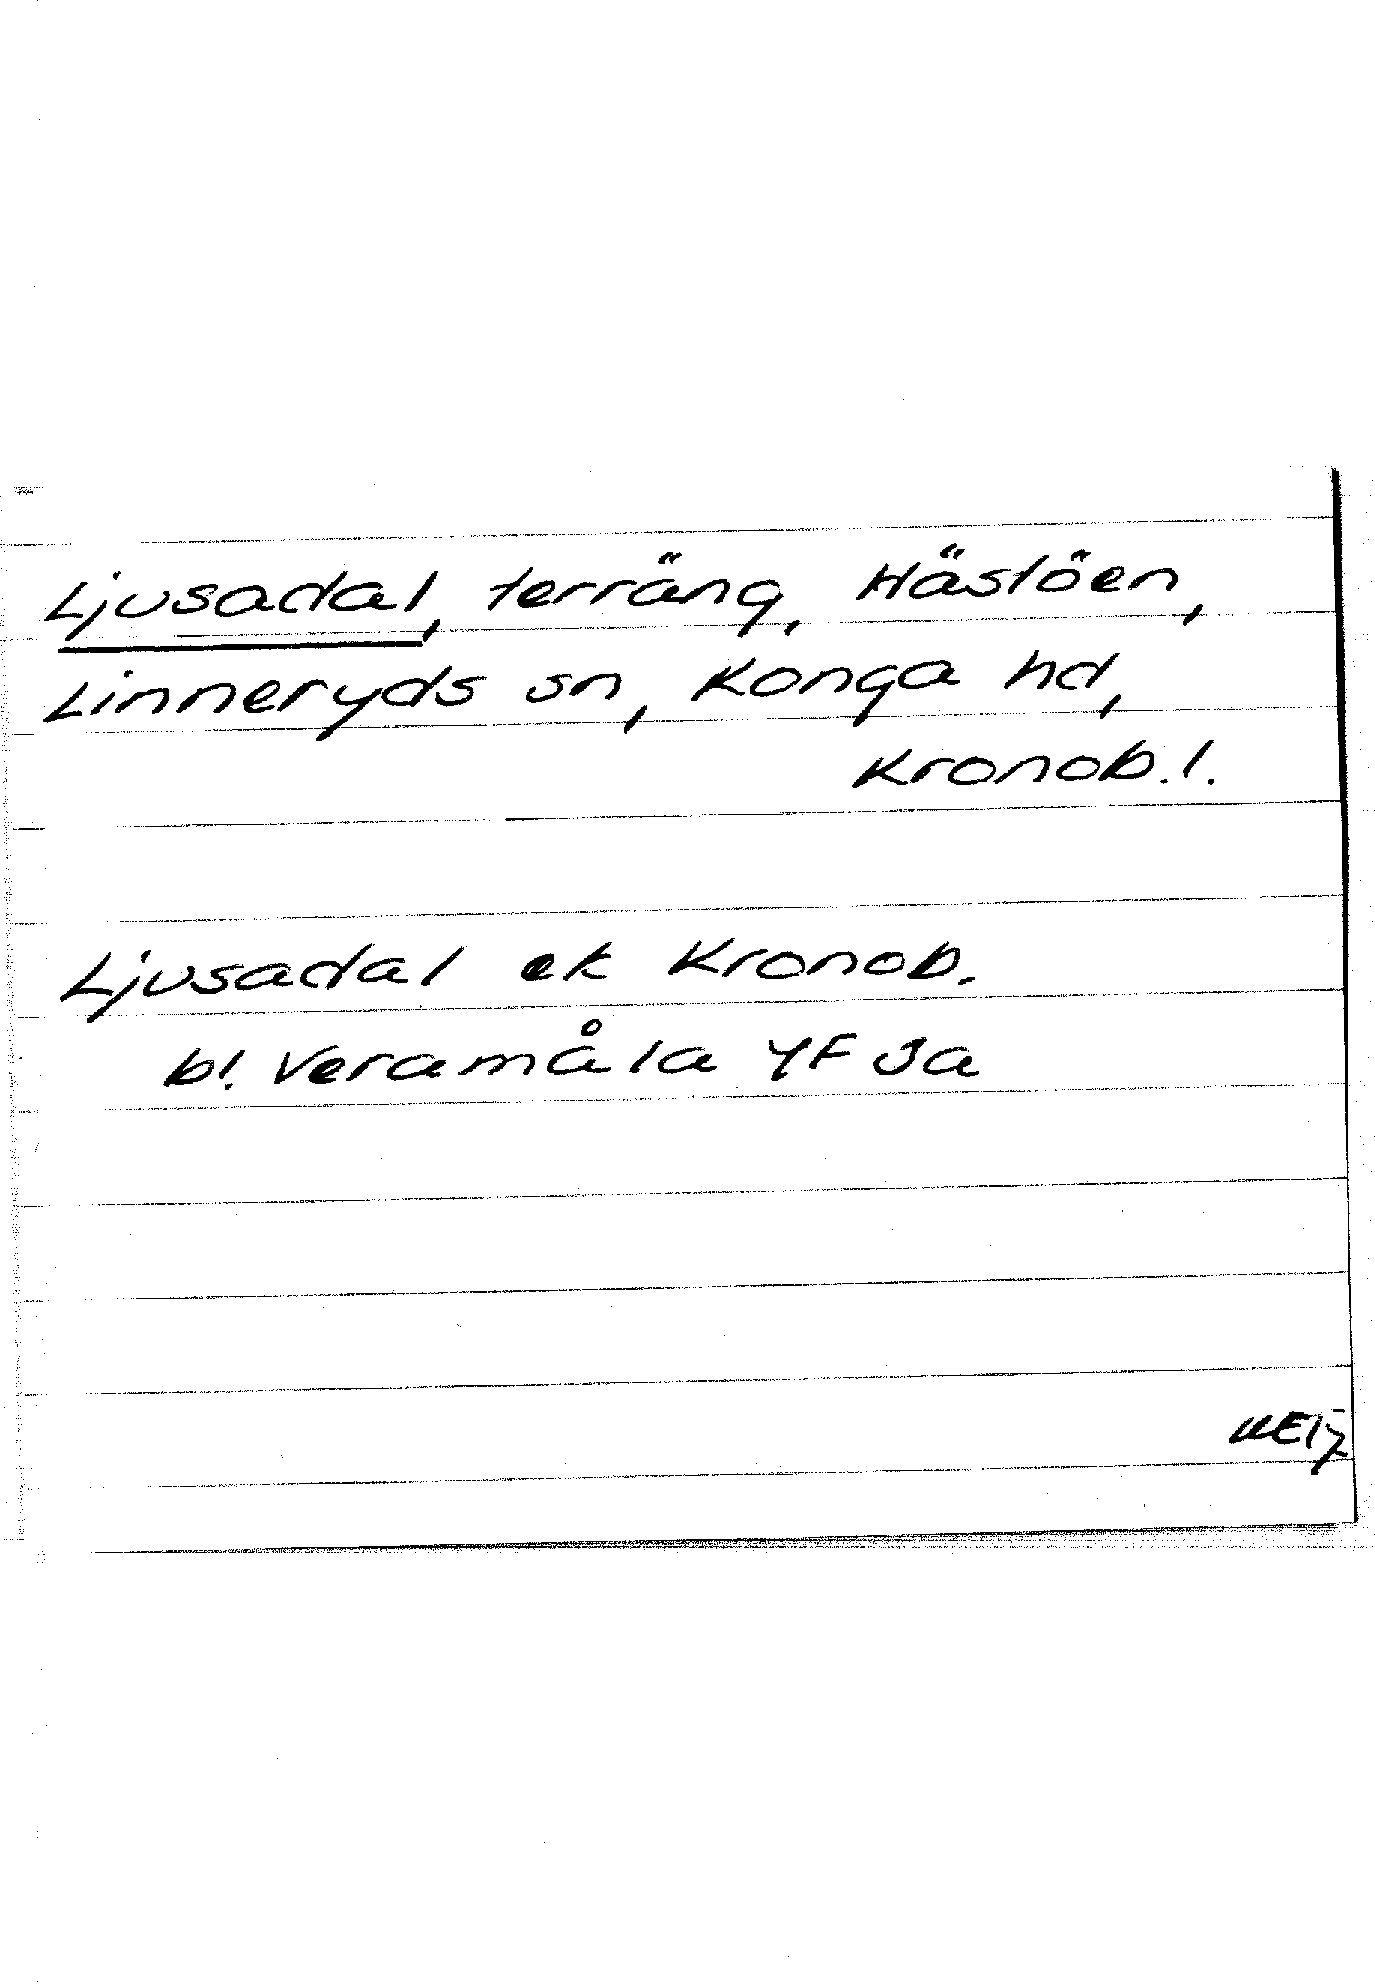 Ljusadal, terräng, Hästöen,
Linneryds sn, Konga hd,
Kronob. l.
Ljusadal ek Kronob.
bl. Veramåla 4F 3a